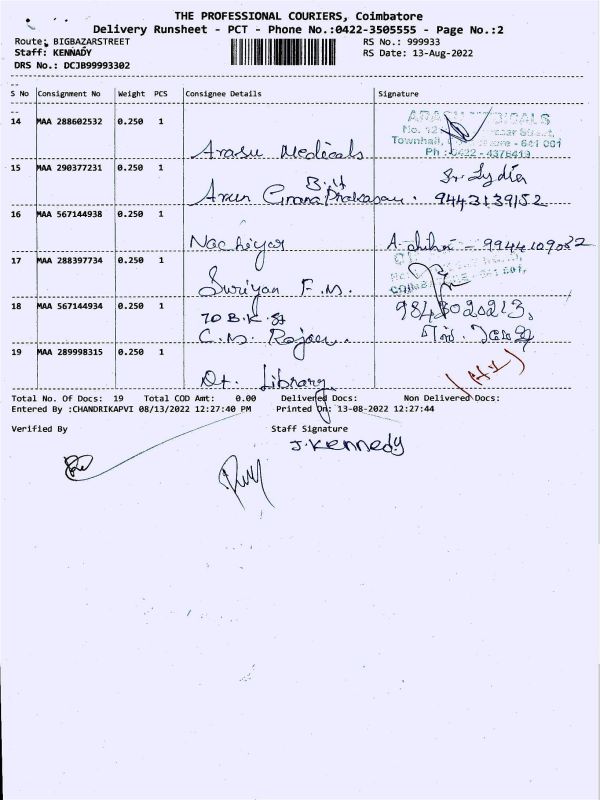 THE PROFESSIONAL COURIERS, Coimbatore
Delivery Runsheet - PCT - Phone No.:0422-3505555 - Page No.:2
Route: BIGBAZARSTREET RS No.: 999933
Staff: KENNADY RS Date: 13-Aug-2022
DRS No.: DCJB99993302
S No Consignment No Weight PCS Consignee Details Signature
14 MAA 288602532 0.250 1
No. 12
Townhall, 641 001
Arasu Medicals Ph : 0422 - 4376413
15 MAA 290377231 0.250 1 Sr. Lydia
B.H
Arun Gnana Prakasam. 9443139152
16 MAA 567144938 0.250 1
Nachiyar 9944109032
17 MAA 288397734 0.250 1
Suriyan F.M.
18 MAA 567144934 0.250 1 70 B.K. St
C.M. Rajan.
19 MAA 289998315 0.250 1
Dt. Library
Total No. Of Docs: 19 Total COD Amt: 0.00 Delivered Docs: Non Delivered Docs:
Entered By :CHANDRIKAPVI 08/13/2022 12:27:40 PM Printed On: 13-08-2022 12:27:44
Verified By Staff Signature
J. Kennedy